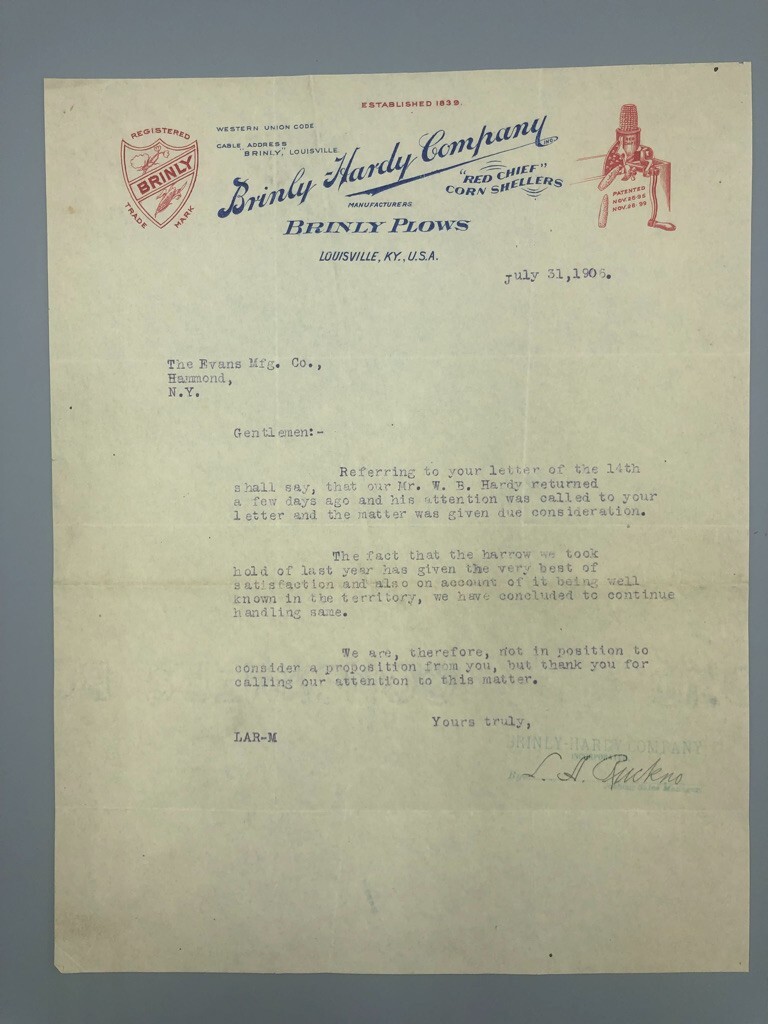 ESTABLISHED 1839.
WESTERN UNION CODE
CABLE ADDRESS
"BRINLY," LOUISVILLE
REGISTERED
BRINLY
TRADE MARK
Brinly-Hardy Company
INC.
MANUFACTURERS
"RED CHIEF"
CORN SHELLERS
BRINLY PLOWS
LOUISVILLE, KY., U.S.A.
PATENTED
July 31,1906.
The Evans Mfg. Co.,
Hammond,
N.Y.
Gentlemen:-
Referring to your letter of the 14th
shall say, that our Mr. W. B. Hardy returned
a few days ago and his attention was called to your
letter and the matter was given due consideration.
The fact that the harrow we took
hold of last year has given the very best of
satisfaction and also on account of it being well
known in the territory, we have concluded to continue
handling same.
We are, therefore, not in position to
consider a proposition from you, but thank you for
calling our attention to this matter.
Yours truly,
LAR-M
BRINLY-HARDY COMPANY
L. A.